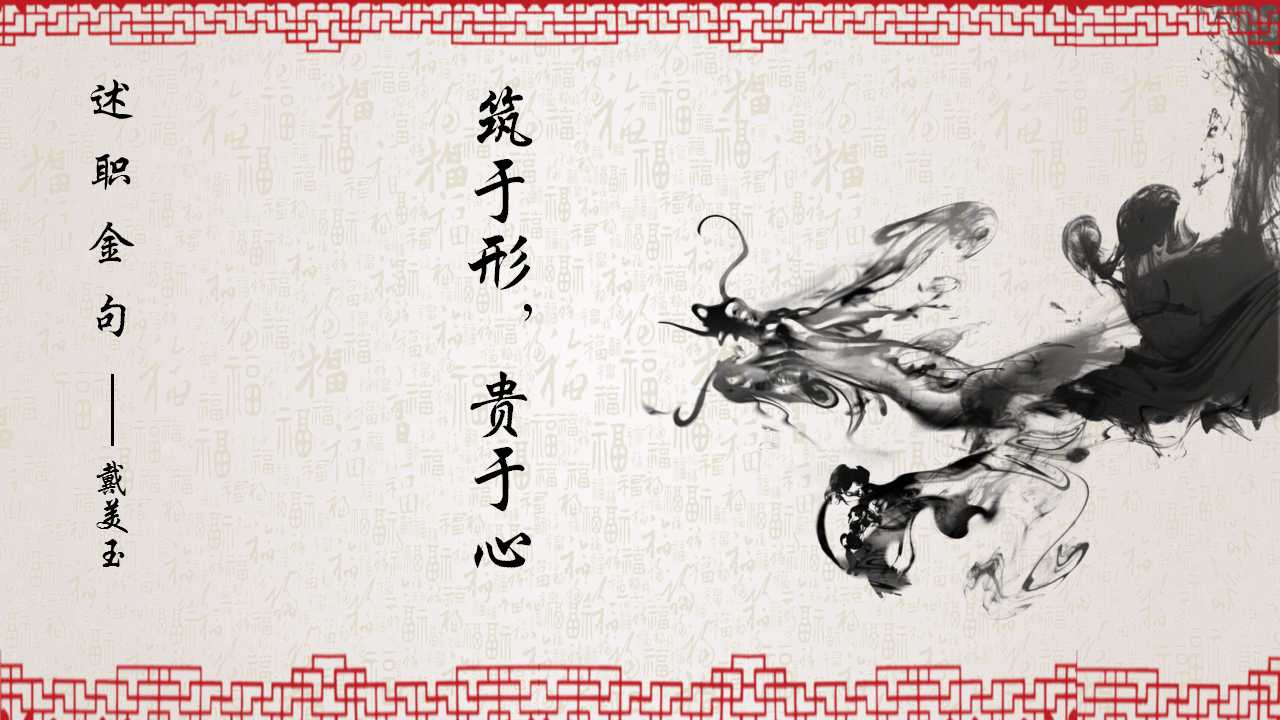 述职金句——戴美玉
筑于形，贵于心